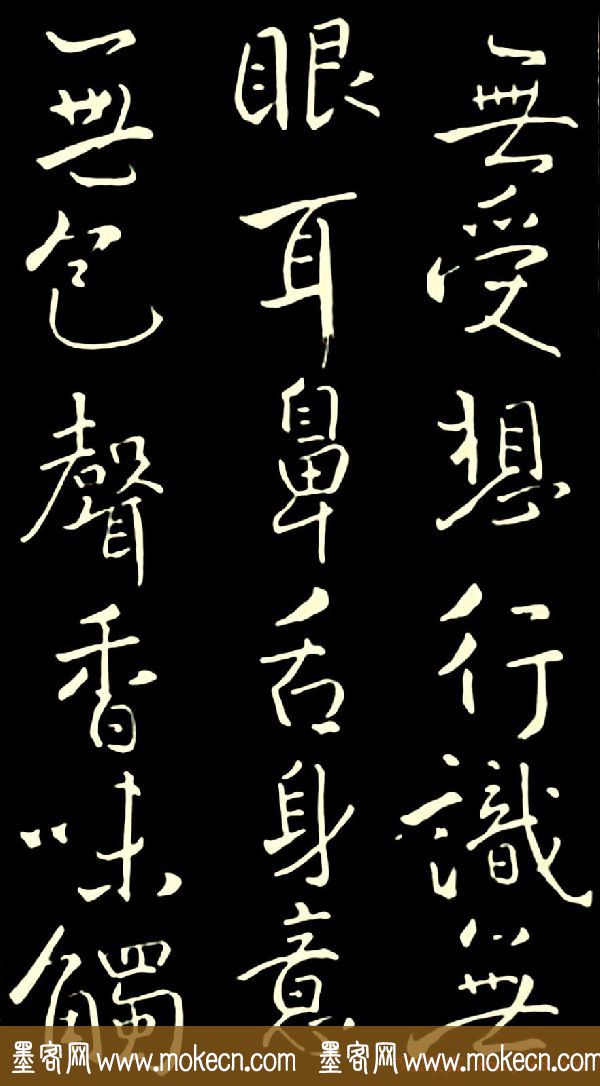 無受想行識無
眼耳鼻舌身意
無色聲香味觸
墨客网 www.mokecn.com 墨客网 www.mokecn.com